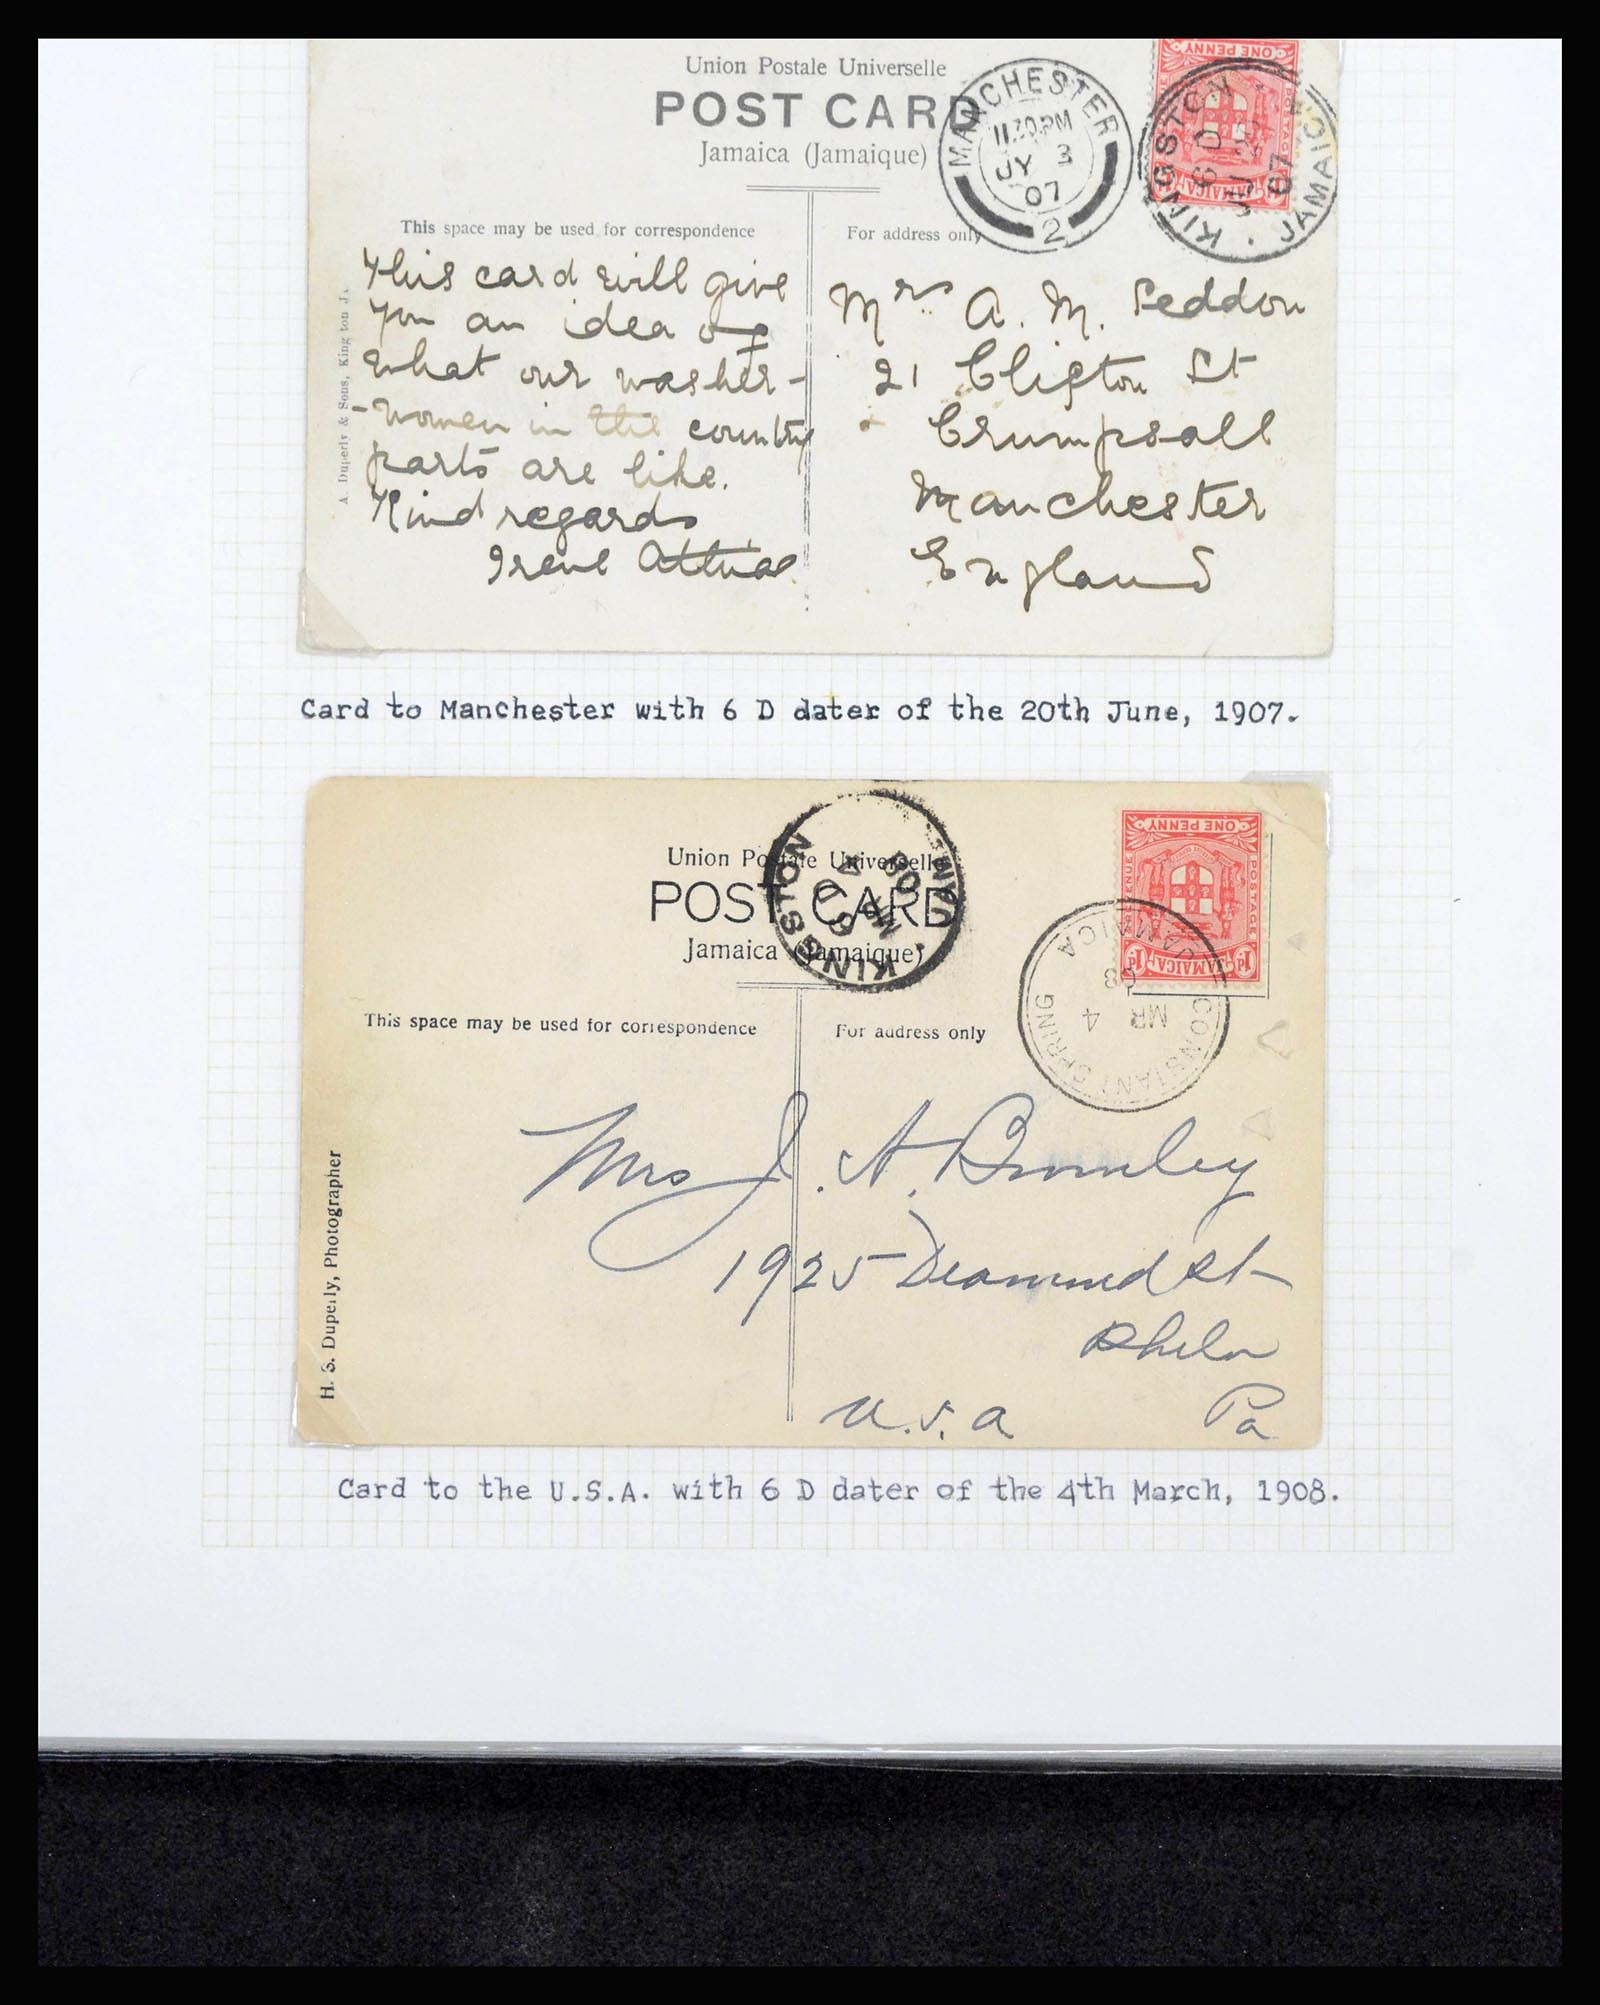 Union Postale Universelle
POST CARD
Jamaica (Jamaique)
MANCHESTER
11.30PM
JY 3
07
2
ONE PENNY
POSTAGE
JAMAICA
KINGSTON JAMAICA
6 D
07
This space may be used for correspondence
For address only
A. Duperly & Sons, Kingston J.
This card will give
you an idea of
what our washer-
-women in the country
parts are like.
Kind regards
Irene
Mrs A. M. Seddon
21 Clifton St
Crumpsall
Manchester
England
Card to Manchester with 6 D dater of the 20th June, 1907.
Union Postale Universelle
POST CARD
Jamaica (Jamaique)
KINGSTON JAM
6 D
MR 4
08
ONE PENNY
REVENUE
POSTAGE
1d JAMAICA 1d
CONSTANT SPRING
JAMAICA
MR 4
08
This space may be used for correspondence
For address only
H. S. Duperly, Photographer
Mrs J. A. Bromley
1925 Diamond St
Phila
Pa
U.S.A
Card to the U.S.A. with 6 D dater of the 4th March, 1908.